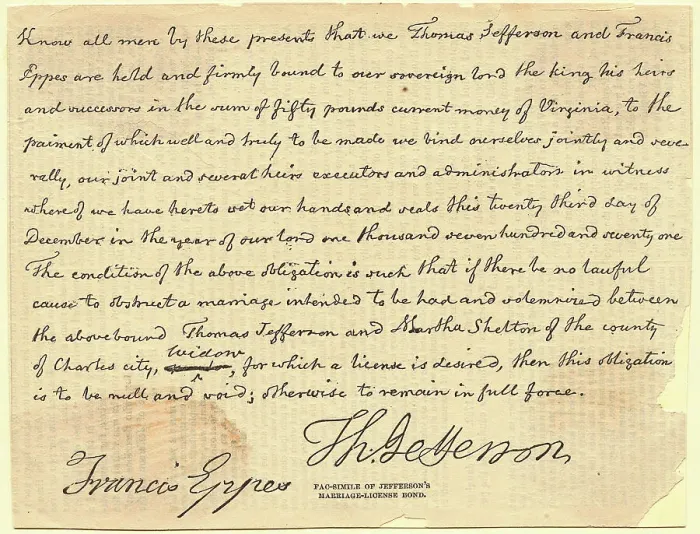 Know all men by these presents that we Thomas Jefferson and Francis
Eppes are held and firmly bound to our sovereign lord the king his heirs
and successors in the sum of fifty pounds current money of Virginia, to the
paiment of which well and truly to be made we bind ourselves jointly and seve-
rally, our joint and several heirs executors and administrators in witness
whereof we have hereto set our hands and seals this twenty third day of
December in the year of our lord one thousand seven hundred and seventy one
The condition of the above obligation is such that if there be no lawful
cause to obstruct a marriage intended to be had and solemnized between
the abovebound Thomas Jefferson and Martha Skelton of the county
of Charles city, widow, for which a license is desired, then this obligation
is to be null and void; otherwise to remain in full force.
Th. Jefferson
Francis Eppes
FAC-SIMILE OF JEFFERSON'S
MARRIAGE-LICENSE BOND.